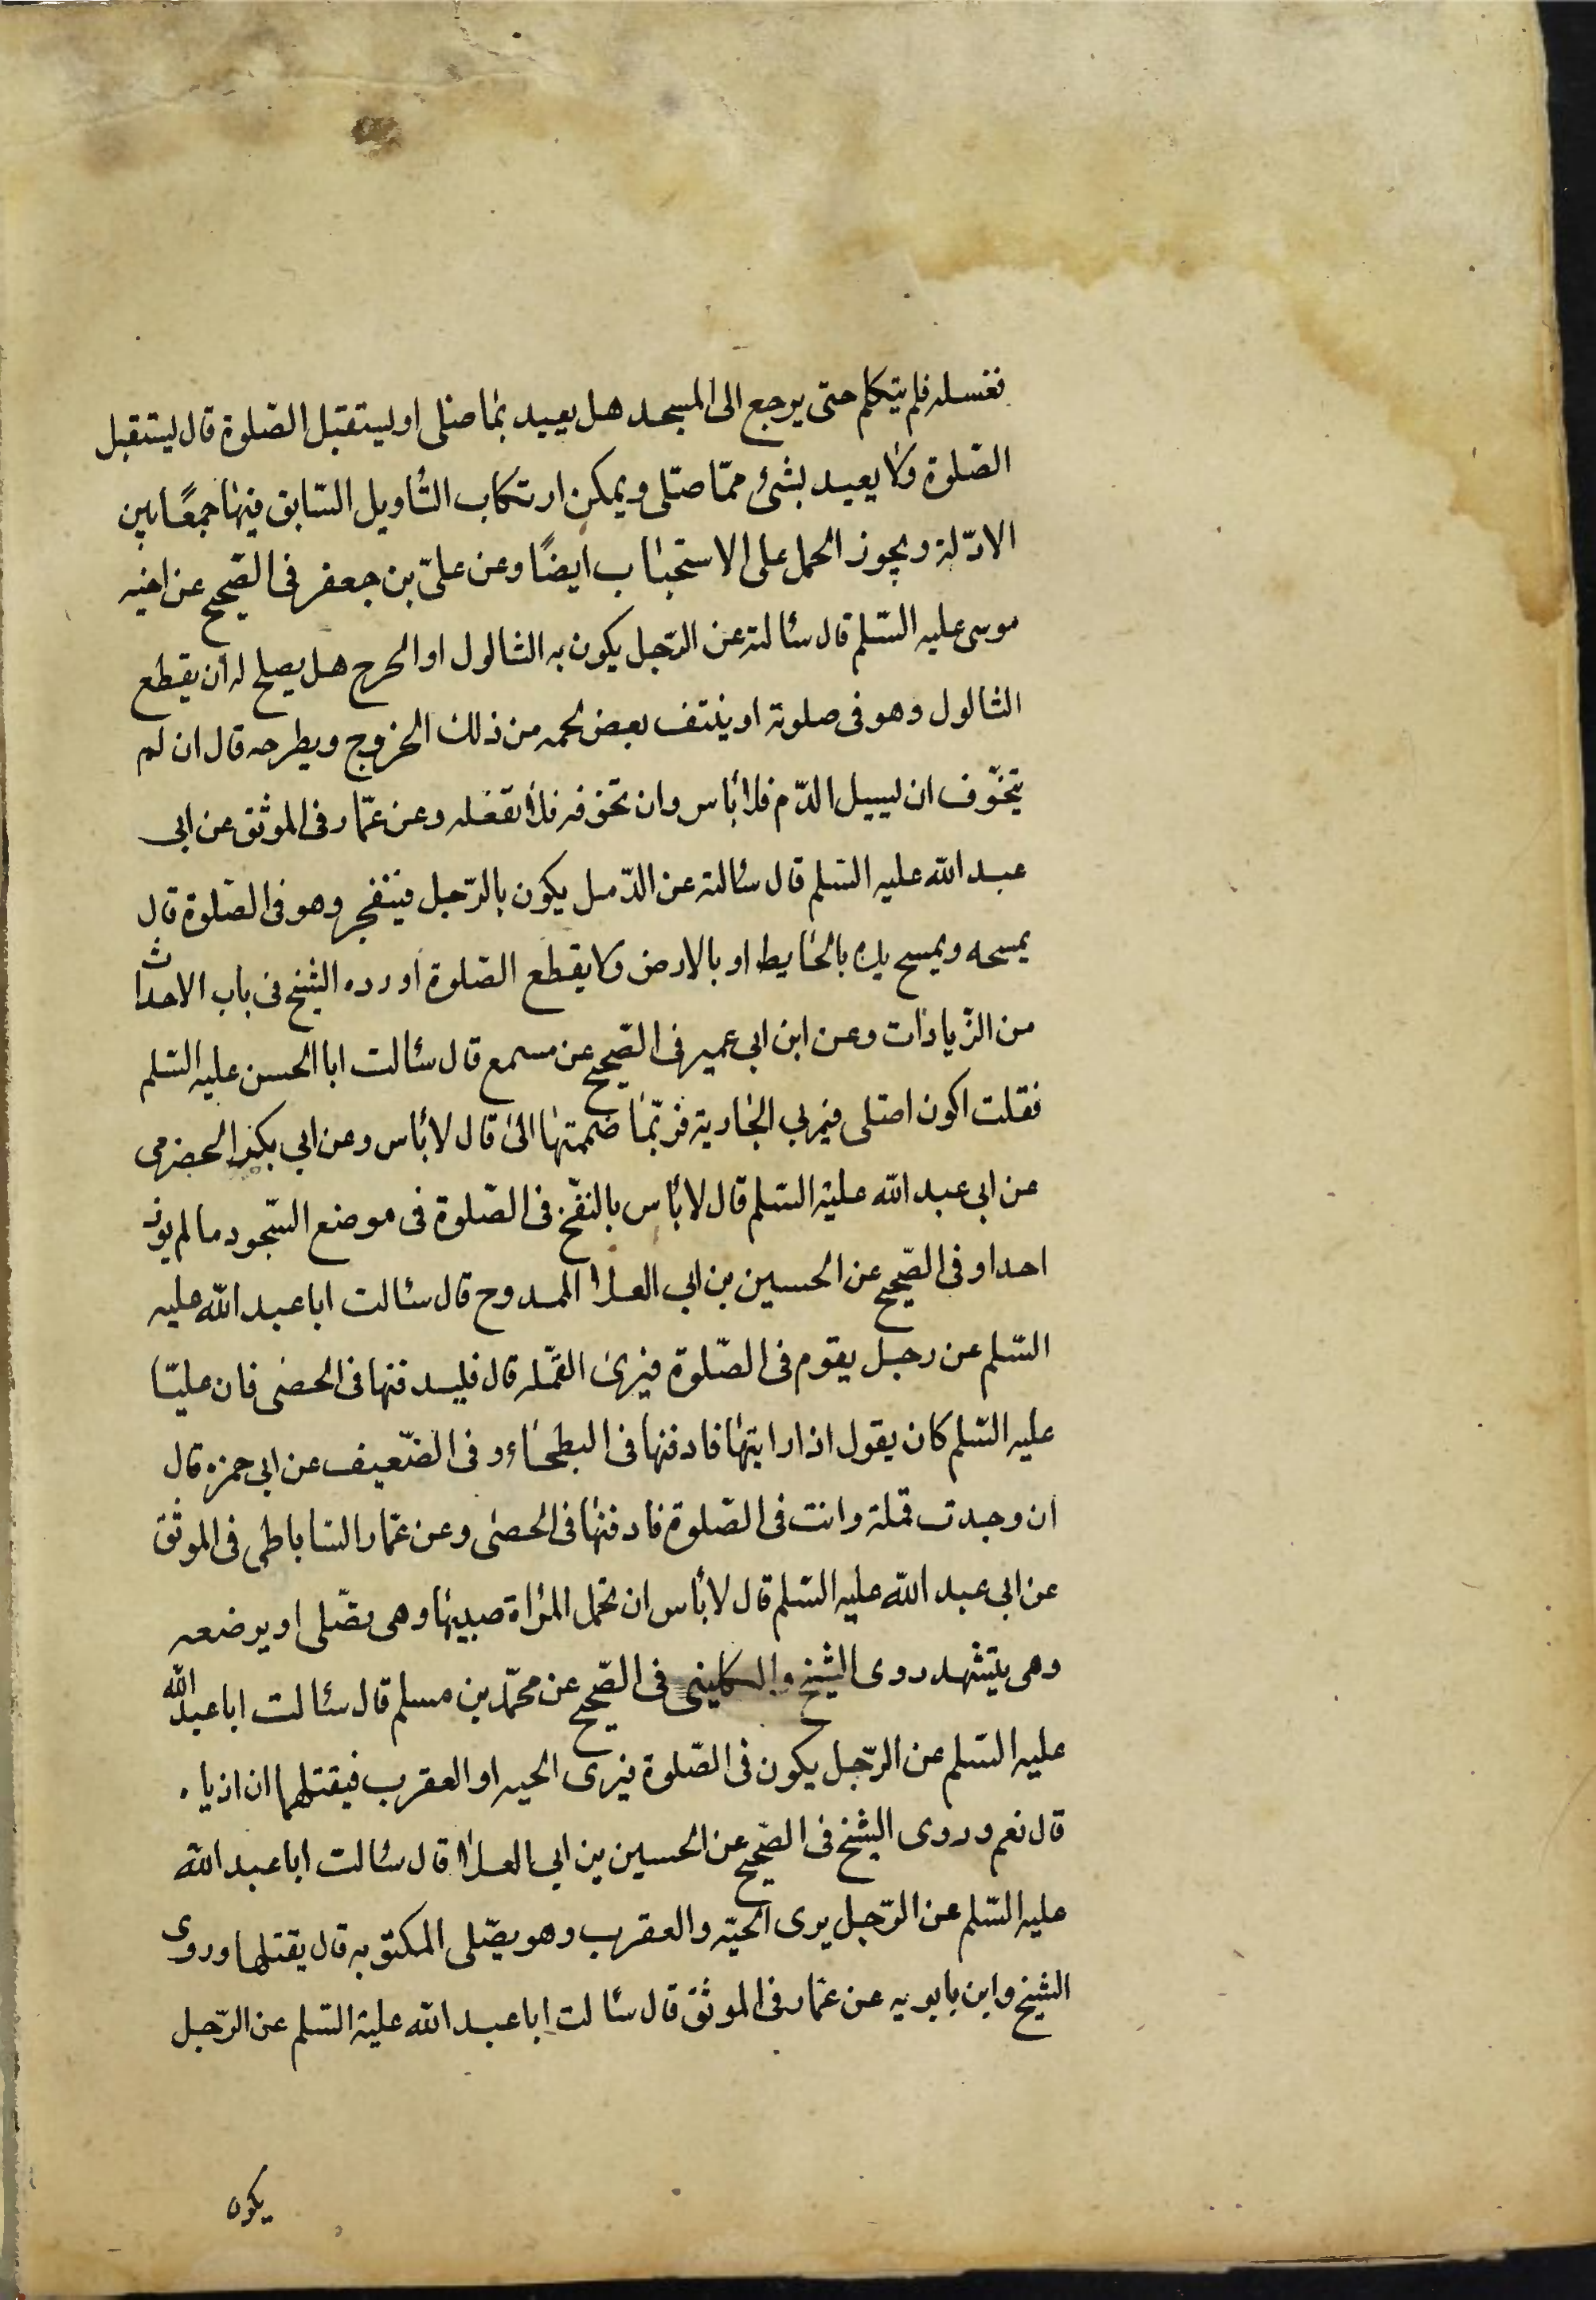 فغسله فلم يتكلم حتى يرجع الى المسجد هل يعيد بما صلى او يستقبل الصّلوة قال ليستقبل
الصّلوة ولا يعيد بشئ ممّا صلى ويمكن ارتكاب التأويل السّابق فيها جمعًا بين
الادّلة ويجوز الحمل على الاستحباب ايضًا وعن علىّ بن جعفر فى الصّحيح عن اخيه
موسى عليه السّلم قال سئالته عن الرّجل يكون به الثالول او الجرح هل يصلح له ان يقطع
الثالول وهو فى صلوته او ينتف بعض لحمه من ذلك الخروج ويطرحه قال ان لم
يتخوّف ان يسيل الدّم فلا بأس وان تخوفه فلا تفعله وعن عمّار فى الموثق عن ابى
عبد الله عليه السّلم قال سئالته عن الدّمل يكون بالرّجل فينفجر وهو فى الصّلوة قال
يمسحه ويمسح يده بالحايط او بالارض ولا يقطع الصّلوة اورده الشيخ فى باب الاحداث
من الزّيادات وعن ابن ابى عمير فى الصّحيح عن مسمع قال سئالت ابا الحسن عليه السّلم
فقلت اكون اصلى فيمر بى الجارية فربّما ضممتها الىّ قال لا بأس وعن ابى بكر الحضرمى
عن ابى عبد الله عليه السّلم قال لا بأس بالنفخ فى الصّلوة فى موضع السّجود ما لم يوذ
احدا وفى الصّحيح عن الحسين بن ابى العلا الممدوح قال سئالت ابا عبد الله عليه
السّلم عن رجل يقوم فى الصّلوة فيرى القمّله قال فليدفنها فى الحصى فان عليّا
عليه السّلم كان يقول اذا رايتها فادفنها فى البطحاء وفى الضّعيف عن ابى حمزه قال
ان وجدت قملة وانت فى الصّلوة فادفنها فى الحصى وعن عمّار السّاباطى فى الموثق
عن ابى عبد الله عليه السّلم قال لا بأس ان تحمل المرأة صبيها وهى تصّلى او يرضعه
وهى يتشهد روى الشيخ والكلينى فى الصّحيح عن محمّد بن مسلم قال سئالت ابا عبد الله
عليه السّلم عن الرّجل يكون فى الصّلوة فيرى الحيه او العقرب فيقتلهما ان اذياه
قال نعم وروى الشيخ فى الصّحيح عن الحسين بن ابى العلا قال سئالت ابا عبد الله
عليه السّلم عن الرّجل يرى الحيّه والعقرب وهو يصّلى المكتوبه قال يقتلهما وروى
الشيخ وابن بابويه عن عمّار فى الموثق قال سئالت ابا عبد الله عليه السّلم عن الرّجل
يكون